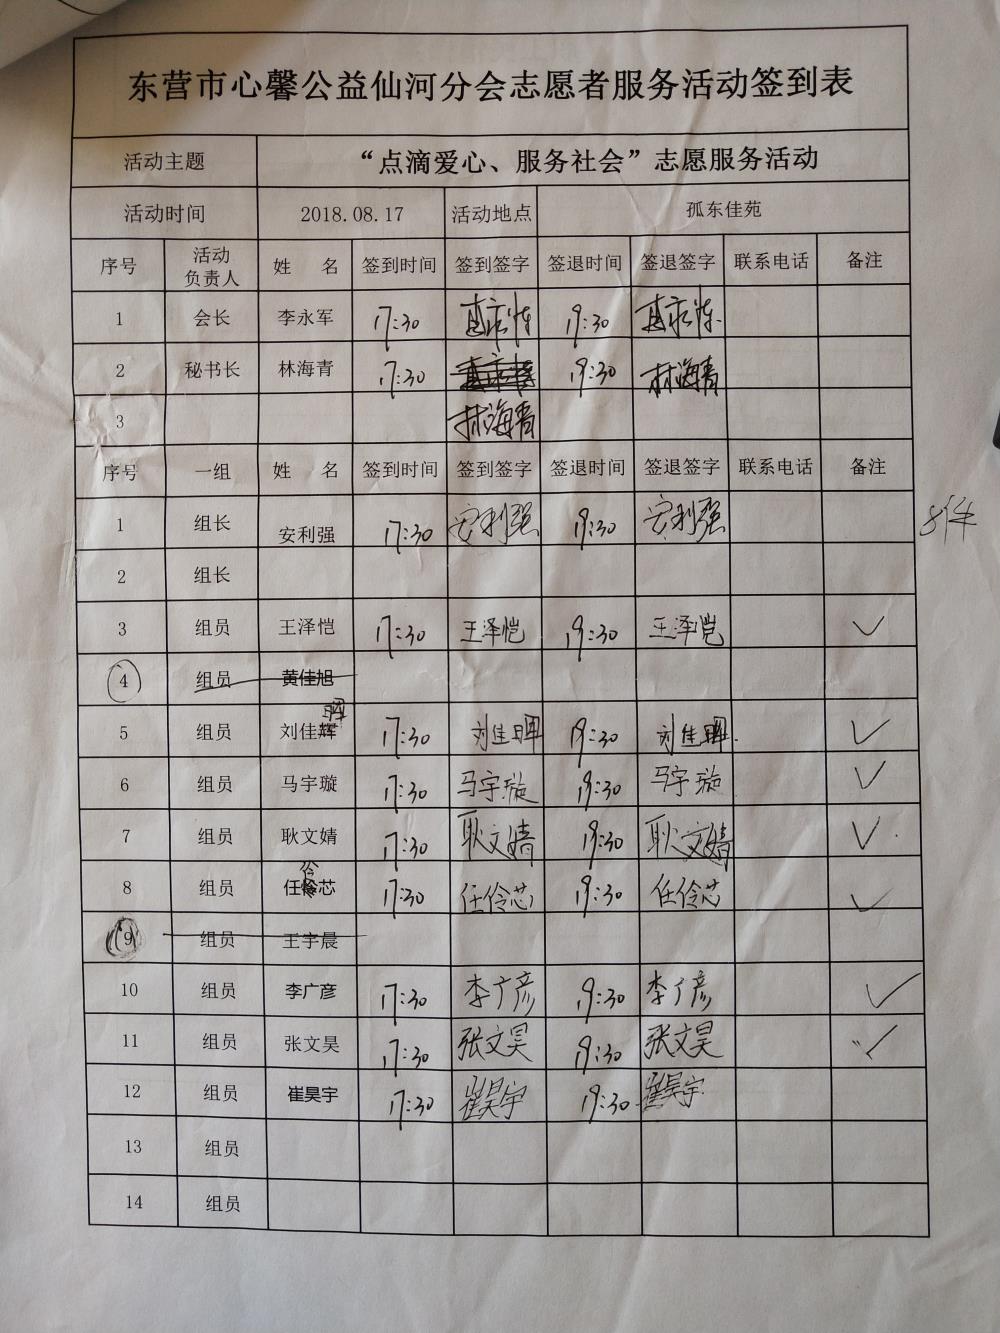 东营市心馨公益仙河分会志愿者服务活动签到表
活动主题 “点滴爱心、服务社会”志愿服务活动
活动时间 2018.08.17 活动地点 孤东佳苑
序号 活动负责人 姓 名 签到时间 签到签字 签退时间 签退签字 联系电话 备注
1 会长 李永军 17:30 19:30
2 秘书长 林海青 17:30 19:30 林海青
3 林海青
序号 一组 姓 名 签到时间 签到签字 签退时间 签退签字 联系电话 备注
1 组长 安利强 17:30 安利强 19:30 安利强 8件
2 组长
3 组员 王泽恺 17:30 王泽恺 19:30 王泽恺 ✓
4 组员 黄佳旭
5 组员 刘佳辉 晖 17:30 刘佳晖 19:30 刘佳晖 ✓
6 组员 马宇璇 17:30 马宇璇 19:30 马宇璇 ✓
7 组员 耿文婧 17:30 耿文婧 19:30 耿文婧 ✓
8 组员 任伶芯 17:30 任伶芯 19:30 任伶芯 ✓
9 组员 王宇晨
10 组员 李广彦 17:30 李广彦 19:30 李广彦 ✓
11 组员 张文昊 17:30 张文昊 19:30 张文昊 ✓
12 组员 崔昊宇 17:30 崔昊宇 19:30 崔昊宇
13 组员
14 组员